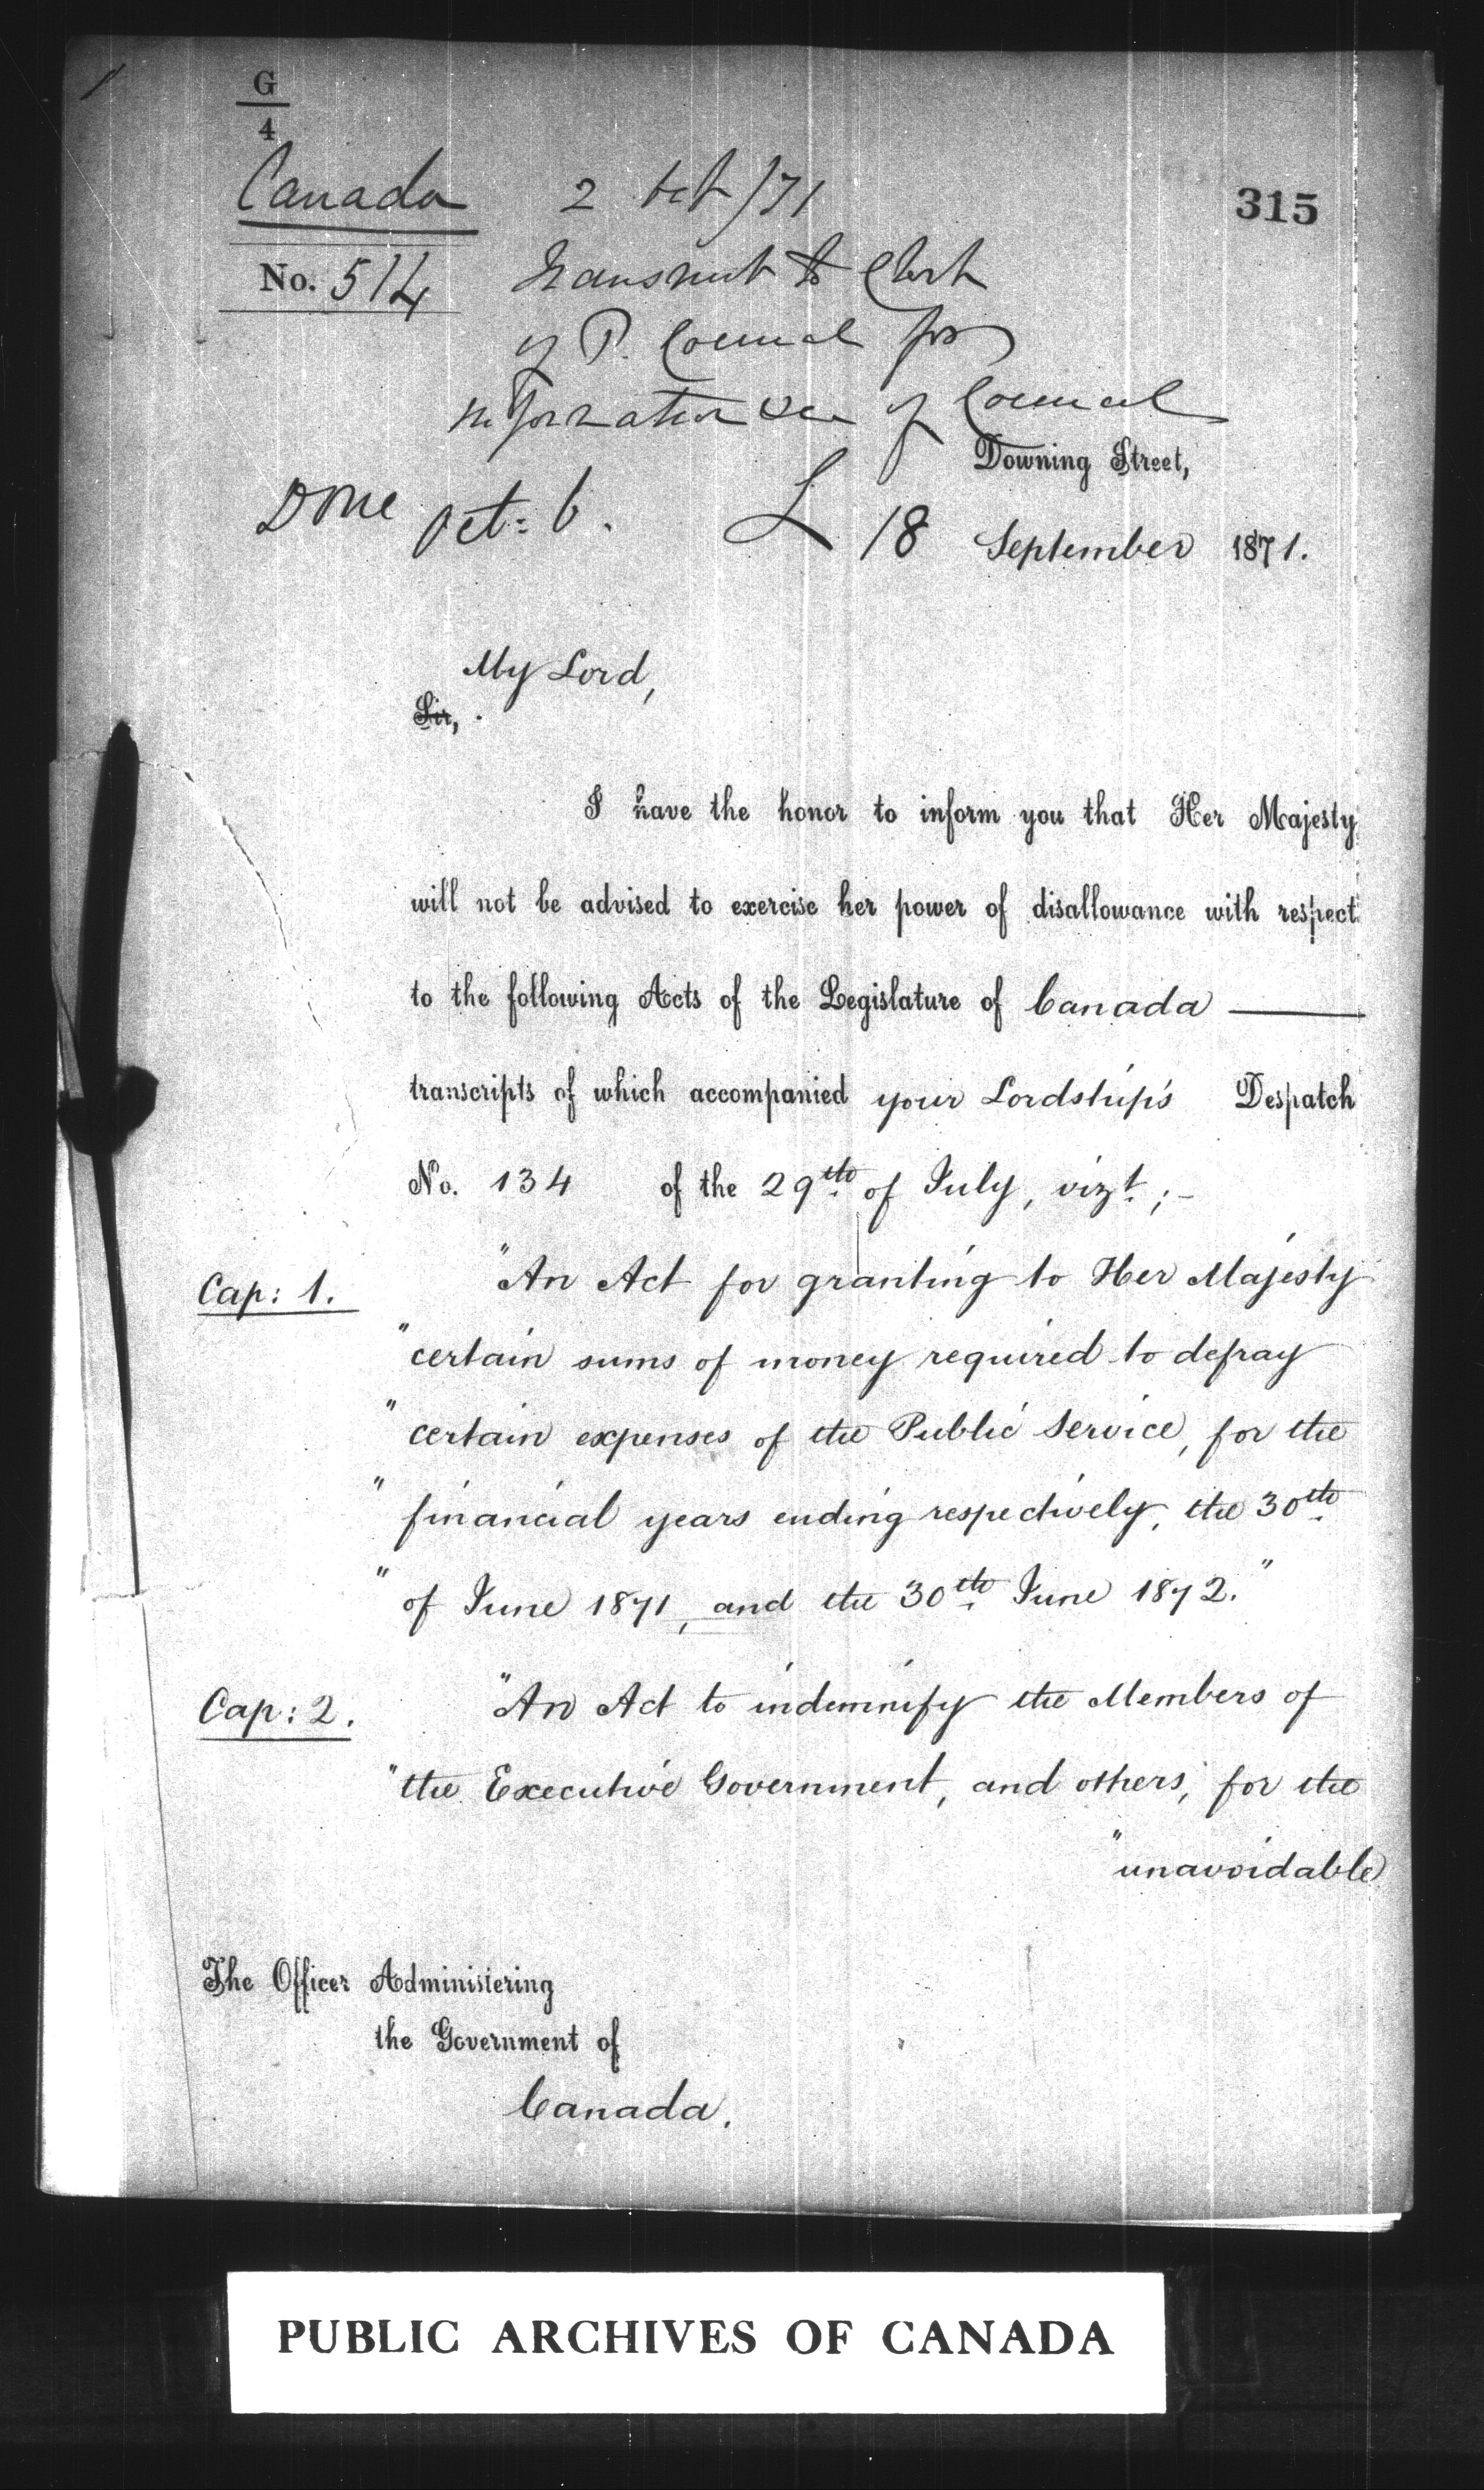 G
4
Canada 2 Oct /71
315
No. 514 Transmit to Clerk
of P. Council for
information &c of Council
Downing Street,
Done Oct: 6. L 18 September 1871.
My Lord,
Sir,
I have the honor to inform you that Her Majesty
will not be advised to exercise her power of disallowance with respect
to the following Acts of the Legislature of Canada
transcripts of which accompanied your Lordship's Despatch
No. 134 of the 29th of July, vizt;-
Cap: 1. "An Act for granting to Her Majesty
"certain sums of money required to defray
"certain expenses of the Public Service, for the
"financial years ending respectively, the 30th
"of June 1871, and the 30th June 1872."
Cap: 2. "An Act to indemnify the Members of
"the Executive Government, and others, for the
"unavoidable
The Officer Administering
the Government of
Canada.
PUBLIC ARCHIVES OF CANADA